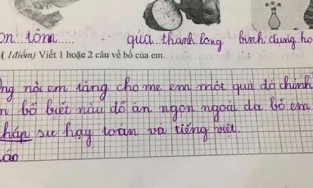 on tôm..... quả thanh long bình đựng ho
( 1điểm) Viết 1 hoặc 2 câu về bố của em.
ng nổi em tặng cho mẹ em một quả đó chính
n bố biết nấu đồ ăn ngon ngoài da bố em
háp sư hay toán và tiếng việt.
áo